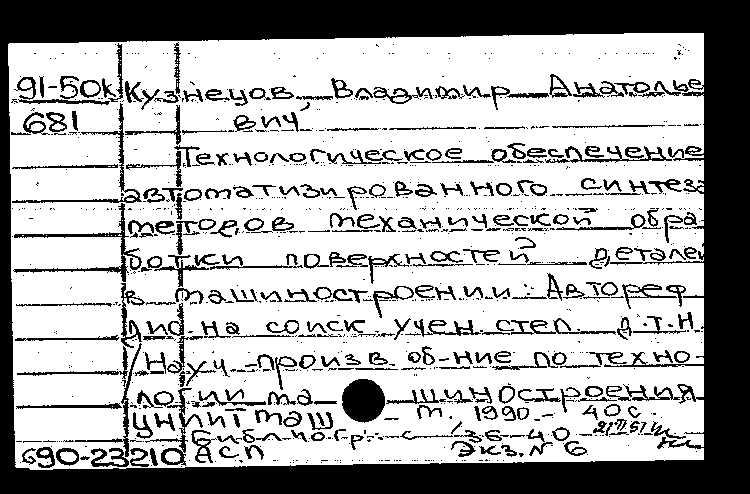 91-50к Кузнецов, Владимир Анатолье
681 вич
Технологическое обеспечение
автоматизированного синтеза
методов механической обра
ботки поверхностей деталей
в машиностроении: Автореф
дис. на соиск учен степ д.т.н.
/Науч-произв об-ние по техно-
логии машиностроения
ЦНИИТМАШ - М. 1990.- 40 с.
Библиогр.: с 36-40
690-23210 АСП Экз. N 6